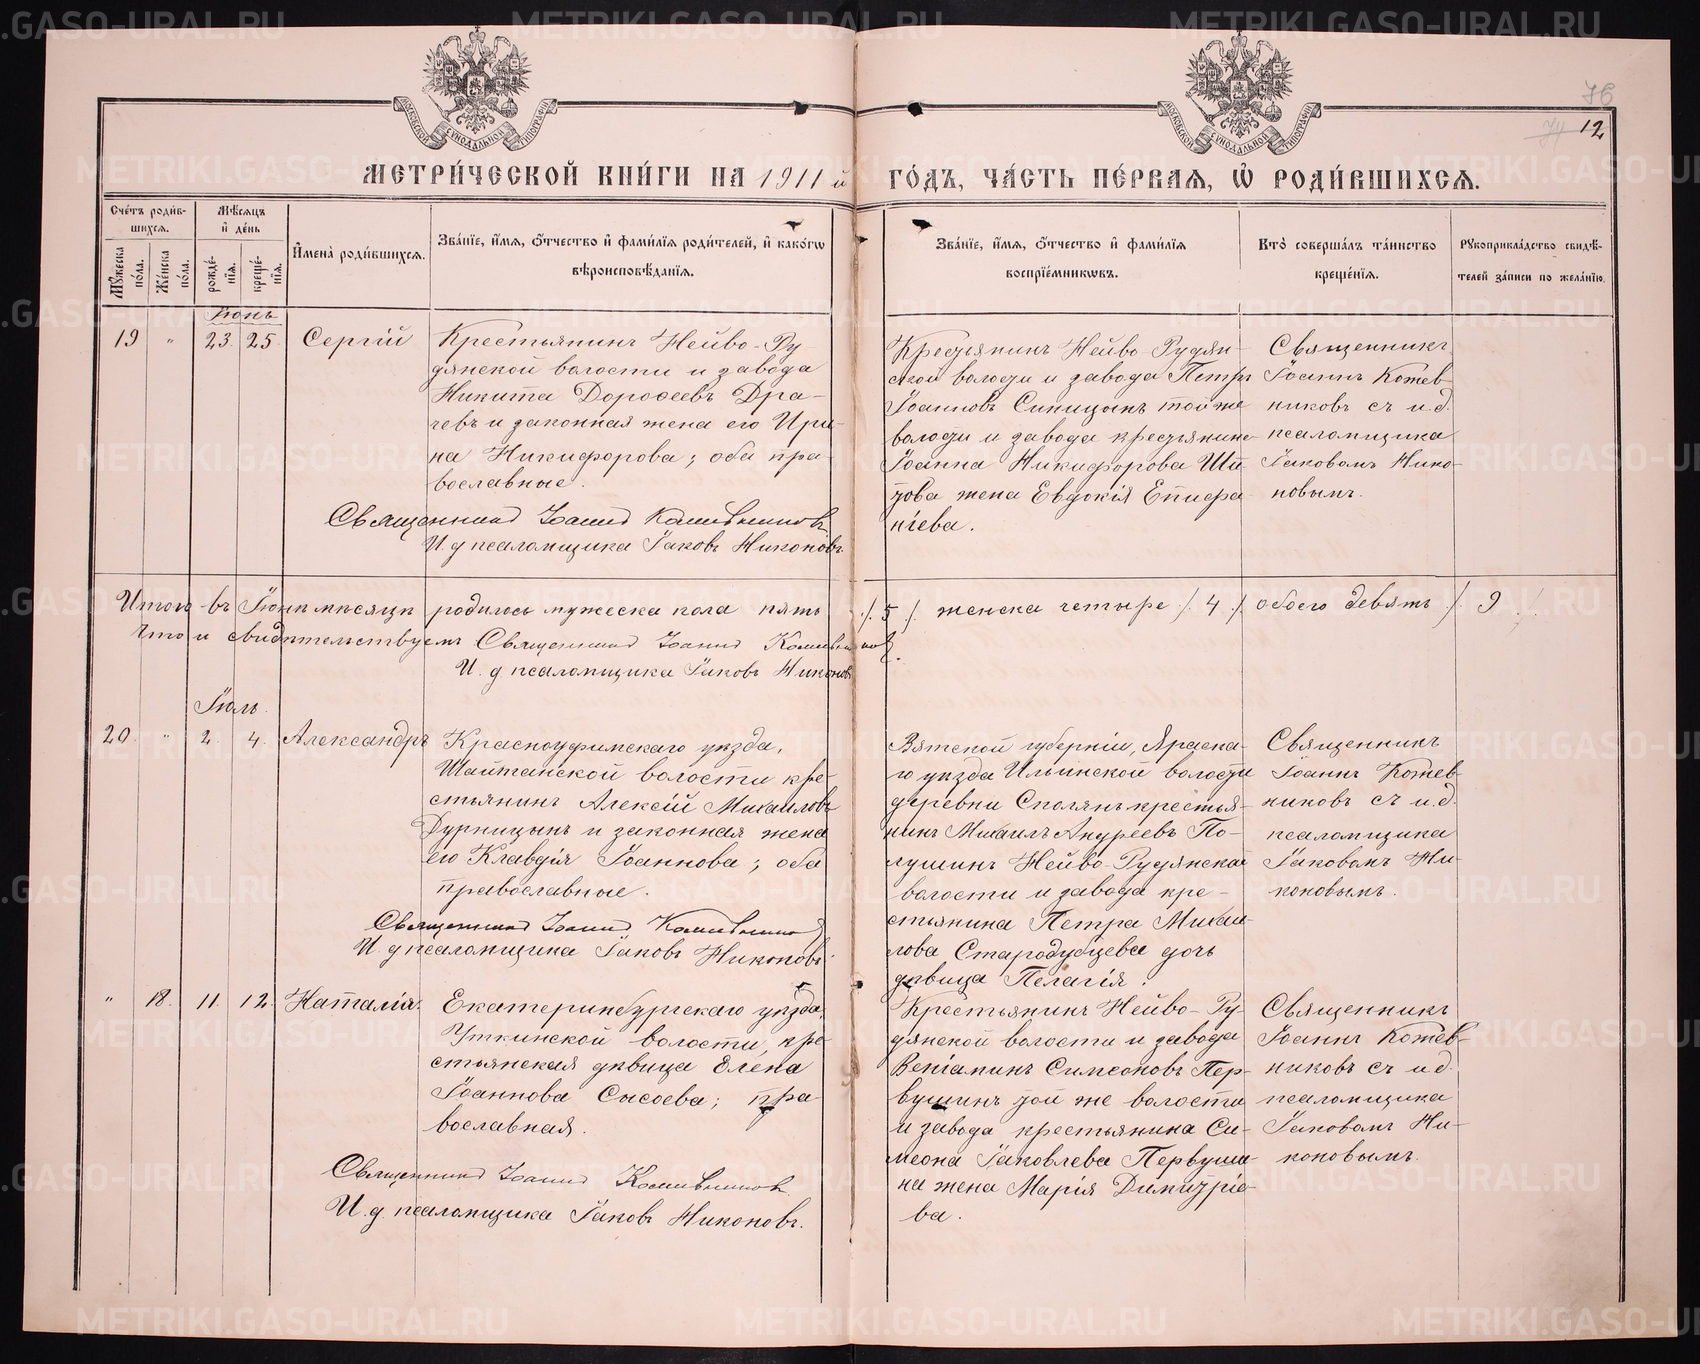 METRIKI.GASO-URAL.RU
МОСКОВСКОЙ СѴНОДАЛЬНОЙ ТИПОГРАФІИ
МОСКОВСКОЙ СѴНОДАЛЬНОЙ ТИПОГРАФІИ
76
74 12
МЕТРИ́ЧЕСКОЙ КНИ́ГИ НА 1911 й ГО́ДЪ, ЧА́СТЬ ПЕ́РВАЯ, Ѡ РОДИ́ВШИХСЯ.
Сче́тъ роди́в-
шихся.
Мꙋ́жеска по́ла.
Же́нска по́ла.
Мѣ́сяцъ
и҆ де́нь
рожде́-
нїя.
креще́-
нїя.
И҆мена̀ роди́вшихся.
Зва́нїе, и҆́мя, ѻ҆́тчество и҆ фами́лїя роди́телей, и҆ како́гѡ
вѣроисповѣ́данїя.
Зва́нїе, и҆́мя, ѻ҆́тчество и҆ фами́лїя
воспрїе́мниковъ.
Кто̀ соверша́лъ та́инство
креще́нїя.
Рꙋкоприкла́дство свидѣ́-
телей за́писи по жела́нїю.
Іюнь
19 " 23. 25. Сергій
Крестьянинъ Нейво-Ру-
дянской волости и завода
Никита Дороѳеевъ Дра-
чевъ и законная жена его Ири-
на Никифорова; оба пра-
вославные.
Священникъ Іоаннъ Кожевниковъ
И. д псаломщика Іаковъ Никоновъ.
Крестьянинъ Нейво Рудян-
ской волости и завода Петръ
Іоанновъ Синицынъ той же
волости и завода крестьянина
Іоанна Никифорова Ши-
това жена Евдокія Епифа-
ніева.
Священникъ
Іоаннъ Кожев-
никовъ съ и.д.
псаломщика
Іаковомъ Нико-
новымъ.
Итого въ Іюнѣ мѣсяцѣ родилось мужеска пола пять /. 5 /. женска четыре /. 4 /. обоего девять /. 9 /.
Что и свидѣтельствуемъ Священникъ Іоаннъ Кожевниковъ.
И. д. псаломщика Іаковъ Никоновъ
Іюль.
20. " 2. 4. Александръ
Красноуфимскаго уѣзда,
Шайтанской волости кре-
стьянинъ Алексій Михаиловъ
Дурницынъ и законная жена
его Клавдія Іоаннова; оба
православные.
Священникъ Іоаннъ Кожевниковъ
И. д псаломщика Іаковъ Никоновъ.
Вятской губерніи, Яранска-
го уѣзда Ильинской волости
деревни крестья-
нинъ Михаилъ Андреевъ По-
лушинъ Нейво-Рудянской
волости и завода кре-
стьянина Петра Михаи-
лова Стародубцева дочь
дѣвица Пелагія.
Священникъ
Іоаннъ Кожев-
никовъ съ и.д.
псаломщика
Іаковомъ Ни-
коновымъ.
" 18. 11. 12. Наталія.
Екатеринбургскаго уѣзда,
Уткинской волости, кре-
стьянская дѣвица Елена
Іоаннова Сысоева; пра-
вославная.
Священникъ Іоаннъ Кожевниковъ
И. д. псаломщика Іаковъ Никоновъ.
Крестьянинъ Нейво-Ру-
дянской волости и завода
Веніаминъ Симеоновъ Пер-
вушинъ той же волости
и завода крестьянина Си-
меона Іаковлева Первуши-
на жена Марія Димитріе-
ва.
Священникъ
Іоаннъ Кожев-
никовъ съ и.д.
псаломщика
Іаковомъ Ни-
коновымъ.